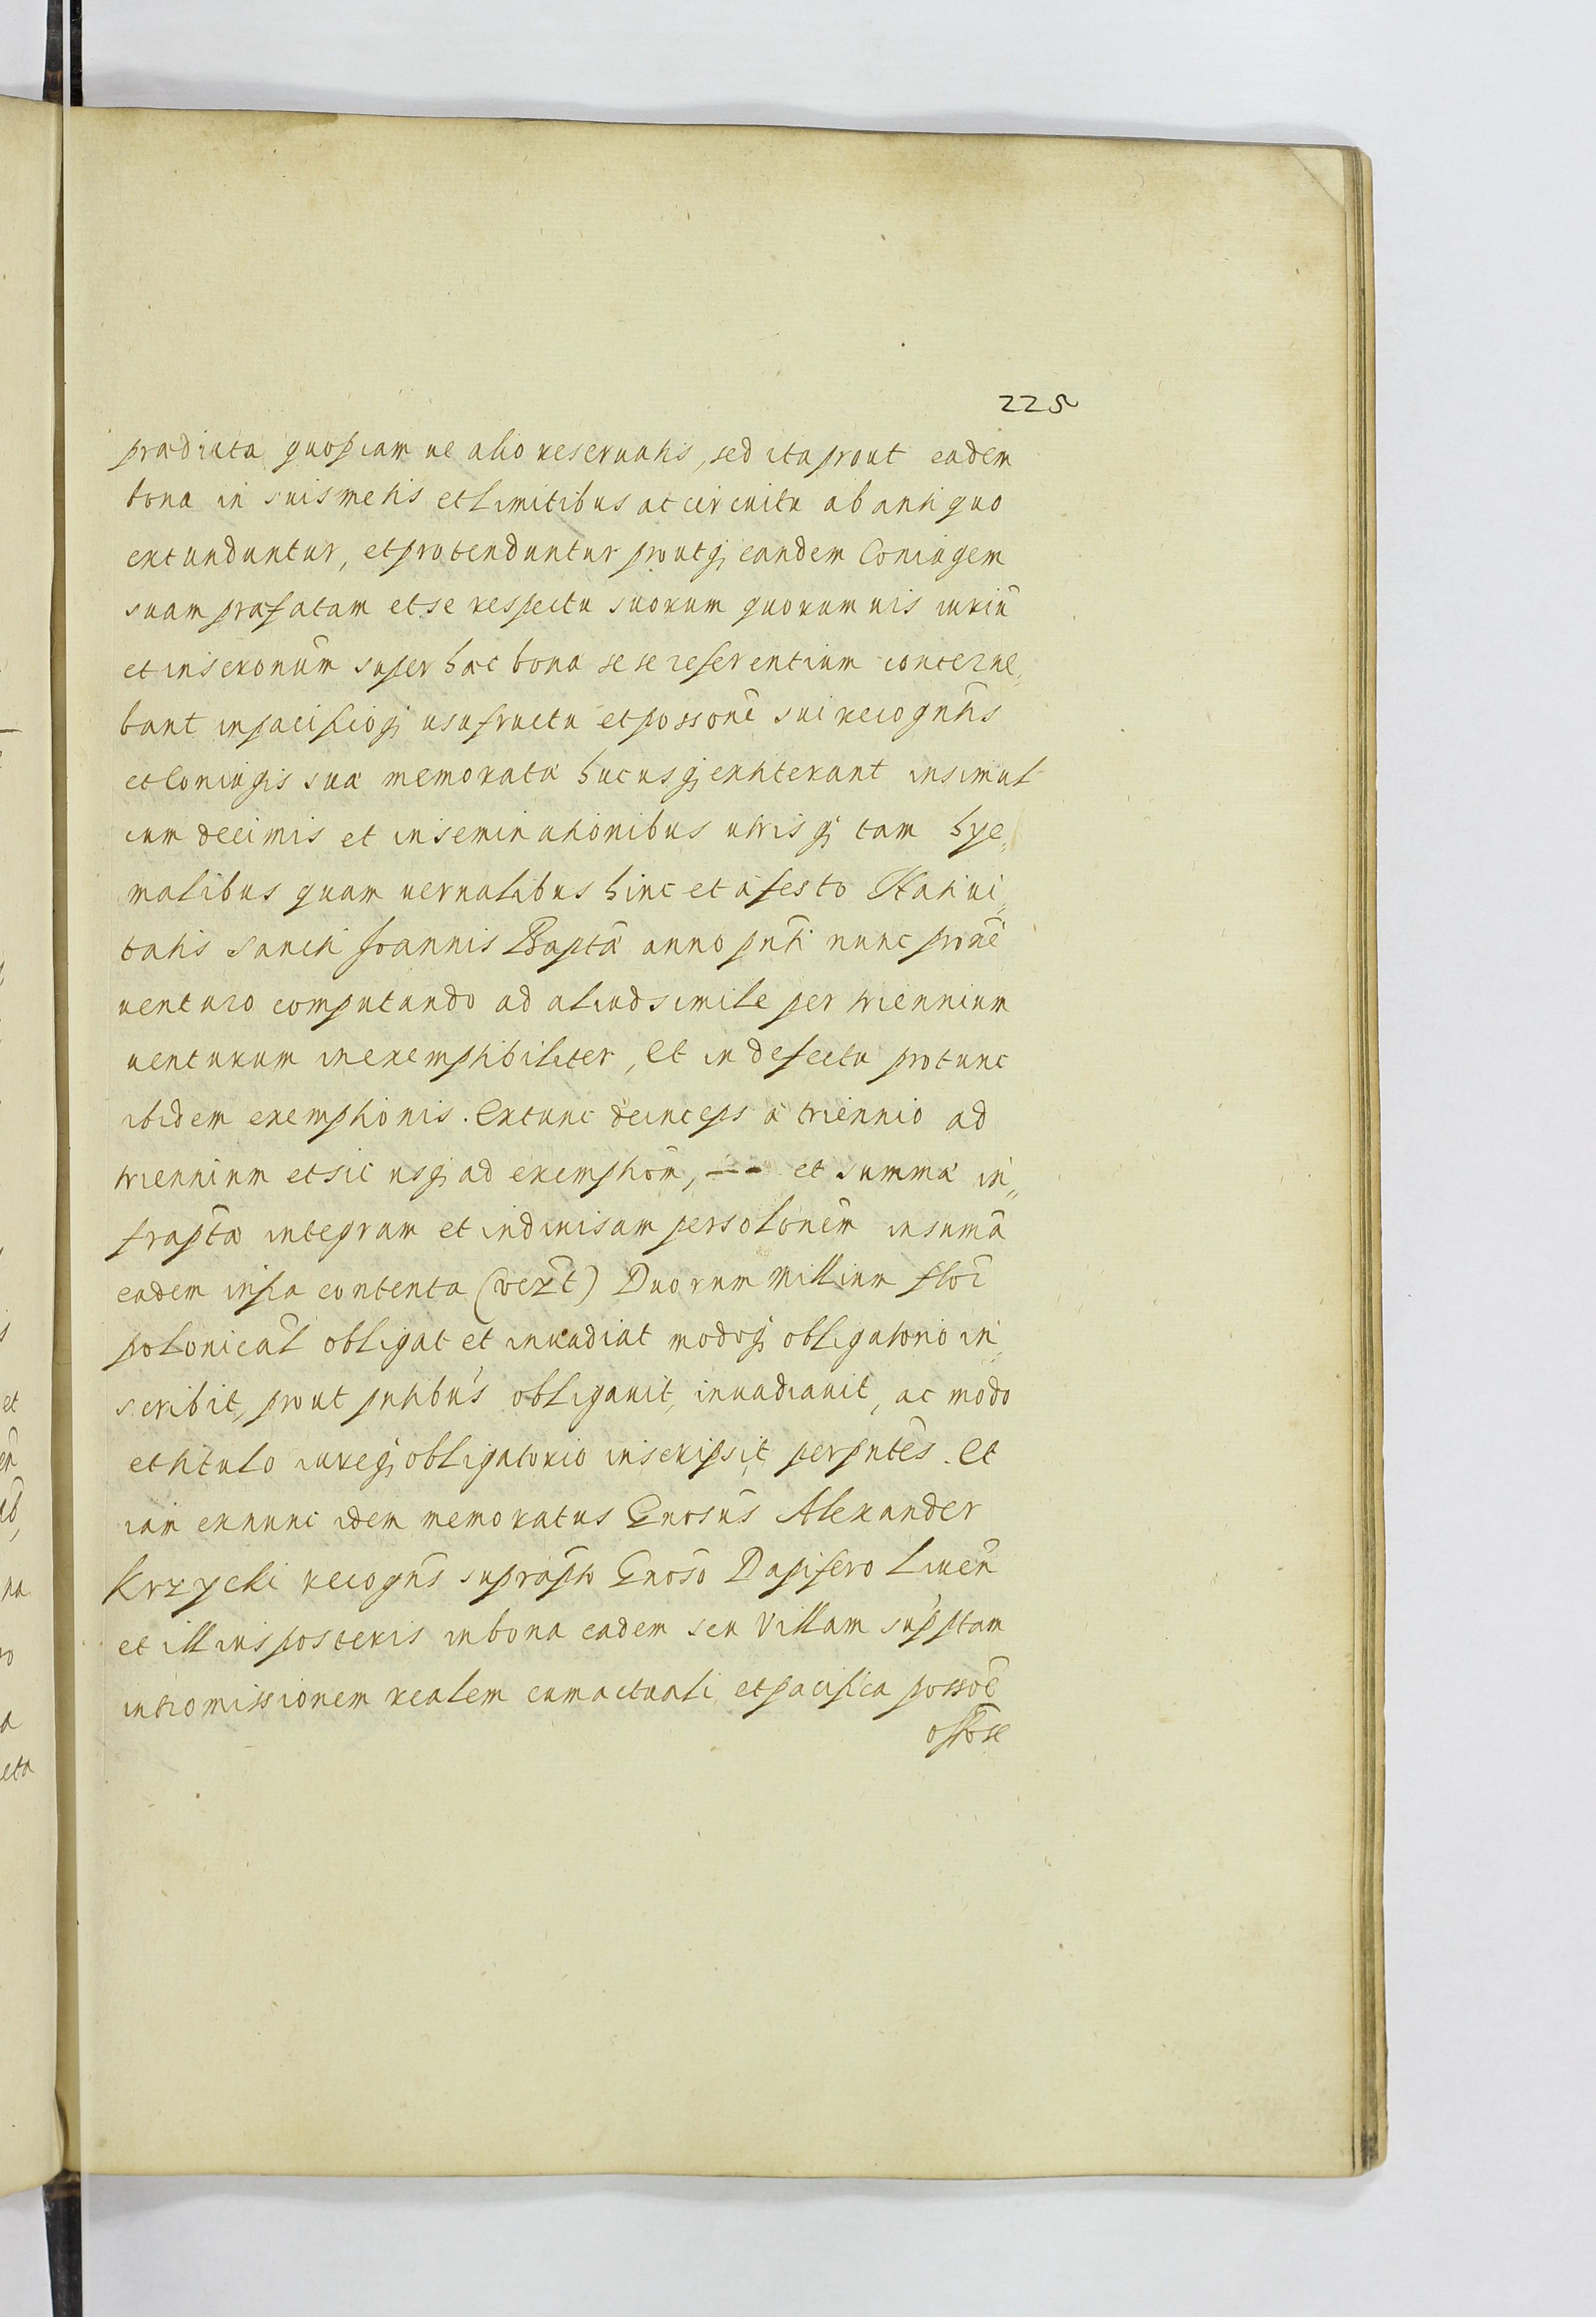 225
prædicta quopiam ue alio reseruatis, sed ita prout eadem
bona in suis metis et limitibus ac circuitu ab antiquo
extunduntur, et protenduntur proutq; eandem Coniugem
suam præfatam et se respectu suorum quorumuis iuriū
et inscrōnum super hæc bona sese referentium concerne„
bant in pacificoq; usufructu et possonē sui recogntis
et Coniugis suæ memoratæ hucusq; extiterant insimul
cum decimis et inseminationibus utrisq; tam hye„
malibus quam uernalibus hinc et à festo Natiui„
tatis Sancti Joannis Baptæ anno pnti nunc proxē
uenturo computando ad aliud simile per triennium
uenturum inexemptibiliter, Et in defectu protunc
ibidem exemptionis. Extunc deinceps à triennio ad
triennium et sic usq; ad exemptiōn, -- et summæ in„
fraptæ integram et indiuisam persolōnem in sumā
eadem infra contenta (vezt) Duorum Millium floř
polonical obligat et inuadiat modoq; obligatorio in„
scribit, prout pntibus obligauit, inuadiauit, ac modo
et titulo iureq; obligatorio inscripsit per pntes. Et
iam exnunc idem memoratus Gnosus Alexander
Krzycki recogns suprapto Gnoso Dapifero Liuen
et illius posteris in bona eadem seu Villam supptam
intromissionem realem cum actuali et pacifica possōē